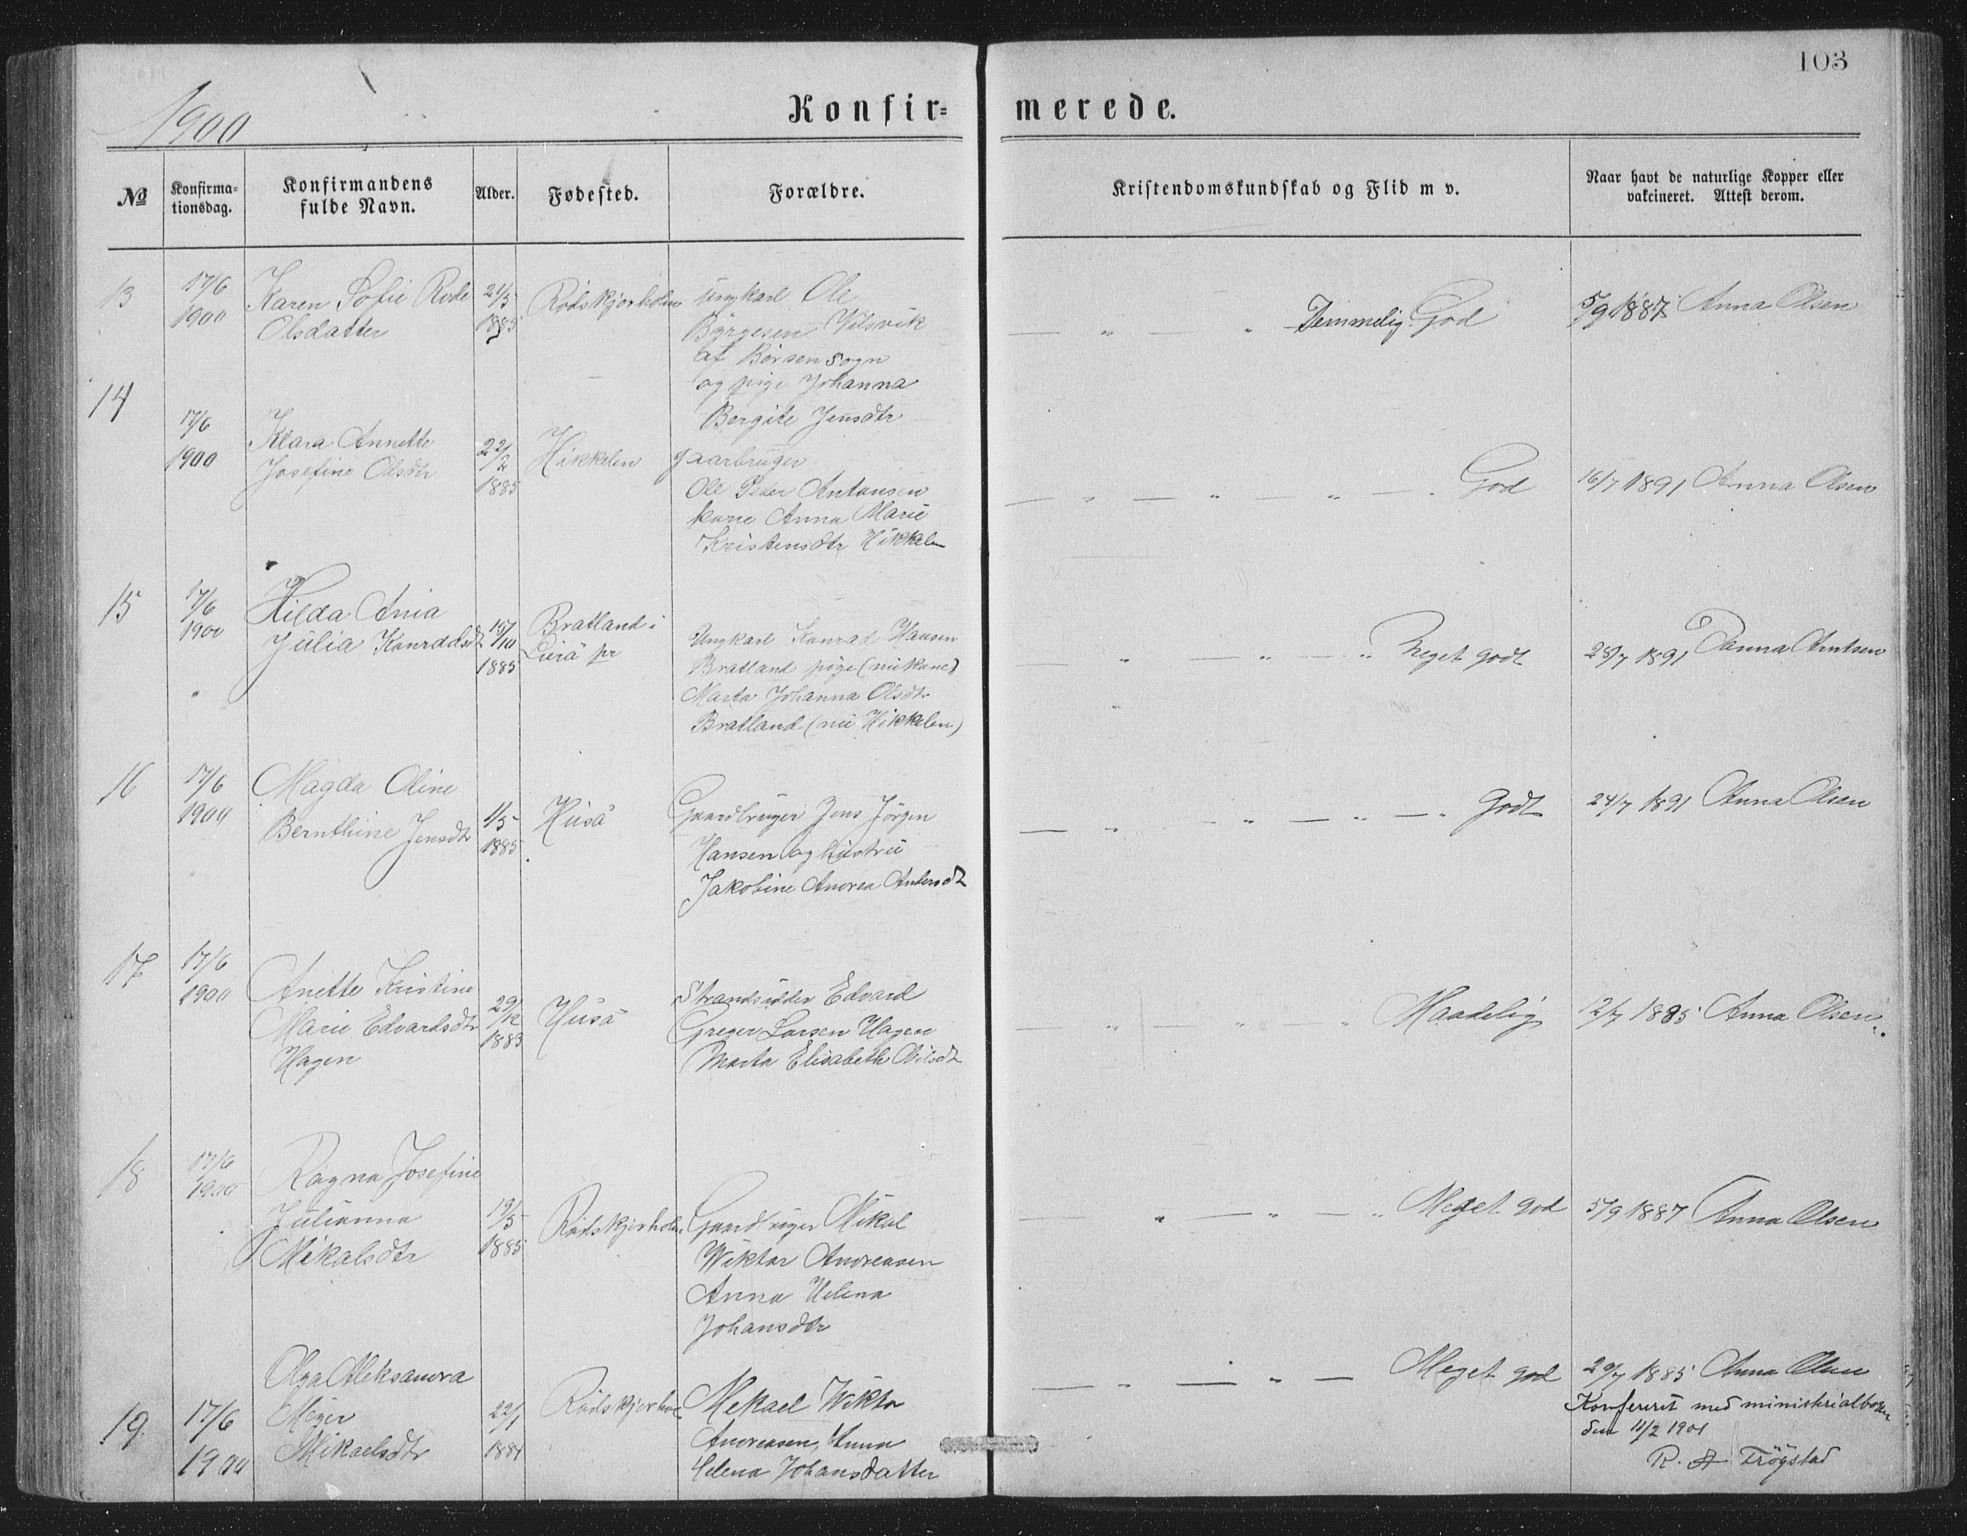 103
1900
Konfir=merede.
No
Konfirma-
tionsdag.
Konfirmandens
fulde Navn.
Alder.
Fødested.
Forældre.
Kristendomskundskab og Flid m v.
Naar havt de naturlige Kopper eller
vakcineret. Attest derom.
13
17/6
1900
Karen Sofie Rode
Olsdatter
21/5
1885
Rødskjærholm
Ungkarl Ole
Børgesen Vilsvik
af Børsen Sogn
og pige Johanna
Bergite Jensdtr
— " — " Temmelig God
5/9 1887 Anna Olsen
14
17/6
1900
Klara Annette
Josefine Olsdtr
22/2
1885
Hikkelen
gaarbruger
Ole Peder Antonsen
kone Anna Marie
Kristensdtr Hikkelen
— " — " — " — " God
16/7 1891 Anna Olsen
15
17/6
1900
Hilda Ania
Julia Konradsdt
15/10
1885
Bratland i
Lurö pr
Ungkarl Konrad Hansen
Bratland pige (nu kone)
Marta Johanna Olsdtr
Bratland (nu Hikkelen)
— " — " — " Meget godt
28/7 1891 Danna Arntsen
16
17/6
1900
Magda Oline
Bernthine Jensdtr
1/5
1885
Husö
Gaardbruger Jens Jörgen
Hansen og hustru
Jakobine Andrea Antonsdt
— " — " — " — " Godt
24/7 1891 Anna Olsen
17
17/6
1900
Anette Kristine
Marie Edvardsdtr
Hagen
29/12
1883
Husö
Strandsidder Edvard
Greger Larsen Hagen
Marta Elisabeth Nilsdt
— " — " — " Maadelig
12/7 1885 Anna Olsen
18
17/6
1900
Ragna Josefine
Julianna
Mikalsdtr
19/5
1885
Rødskjærholm
Gaardbruger Mikal
Wiktor Andreasen
Anna Helena
Johansdtr
— " — " — " Meget god
5/9 1887 Anna Olsen
19
17/6
1900
Olga Aleksandra
Meyer
Mikaelsdtr
22/1
1884
Rødskjærhol
Mekael Wiktor
Andreasen, Anna
Helena Johansdatter
— " — " — Meget god
29/7 1885 Anna Olsen
Konfereret med ministerialboken
den 11/2 1901
R. A Trögstad